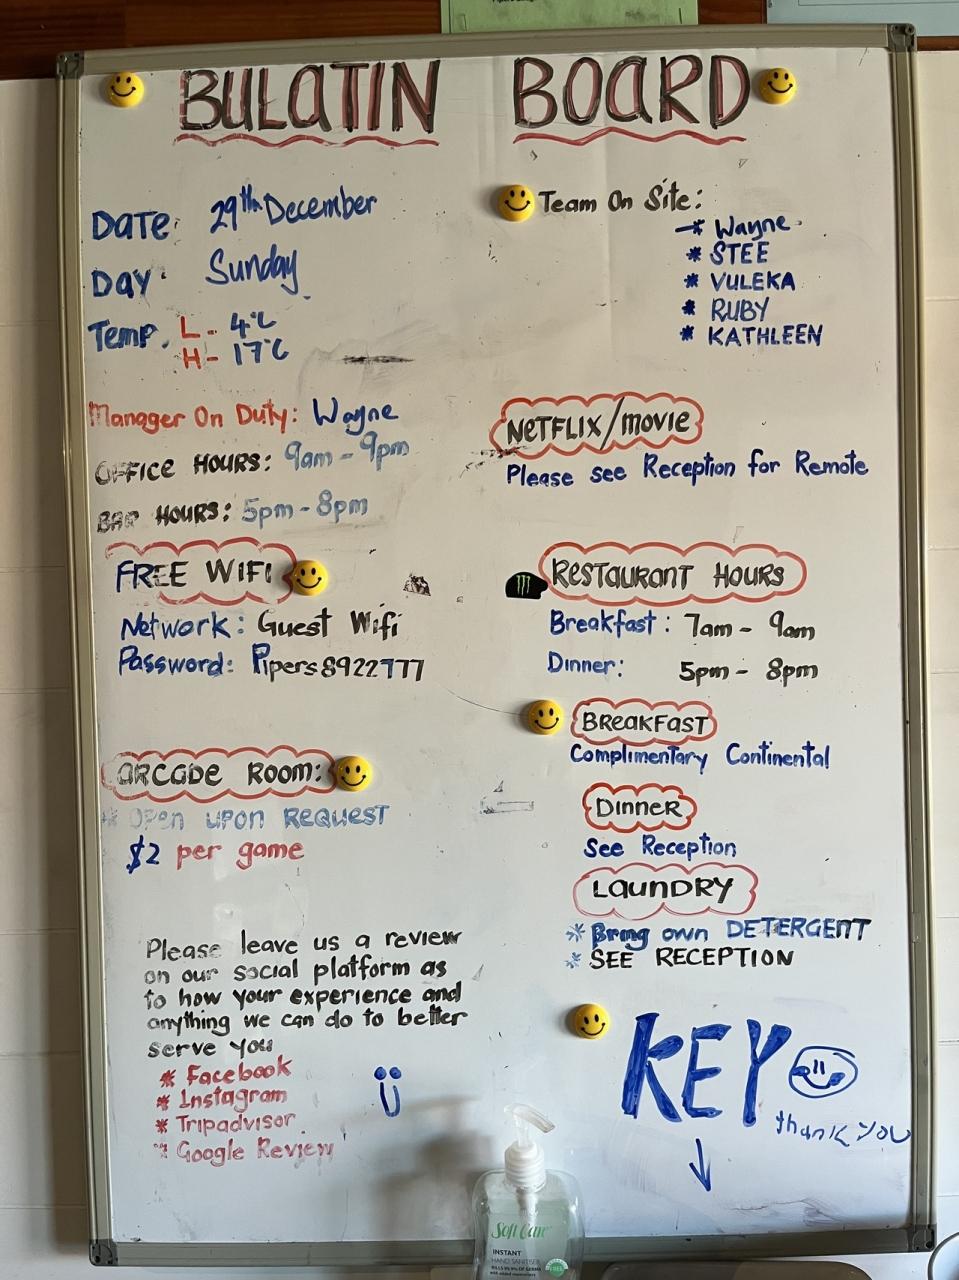 BULATIN BOARD
DATE: 29th December
DAY: Sunday
Temp. L - 4°C
H - 17°C
Manager On Duty: Wayne
OFFICE HOURS: 9am - 9pm
BAR HOURS: 5pm - 8pm
FREE WIFI
Network: Guest Wifi
Password: Pipers8922777
ARCADE ROOM:
* OPEN UPON REQUEST
$2 per game
Please leave us a review
on our social platform as
to how your experience and
anything we can do to better
serve you
* Facebook
* Instagram
* Tripadvisor.
* Google Review
Team On Site:
* Wayne
* STEE
* VULEKA
* RUBY
* KATHLEEN
NETFLIX/MOVIE
Please see Reception for Remote
RESTAURANT HOURS
Breakfast: 7am - 9am
Dinner: 5pm - 8pm
BREAKFAST
Complimentary Continental
DINNER
See Reception
LAUNDRY
* Bring own DETERGENT
* SEE RECEPTION
KEY
thank you
Soft Care
INSTANT
HAND SANITISER
KILLS 99.9% OF GERMS